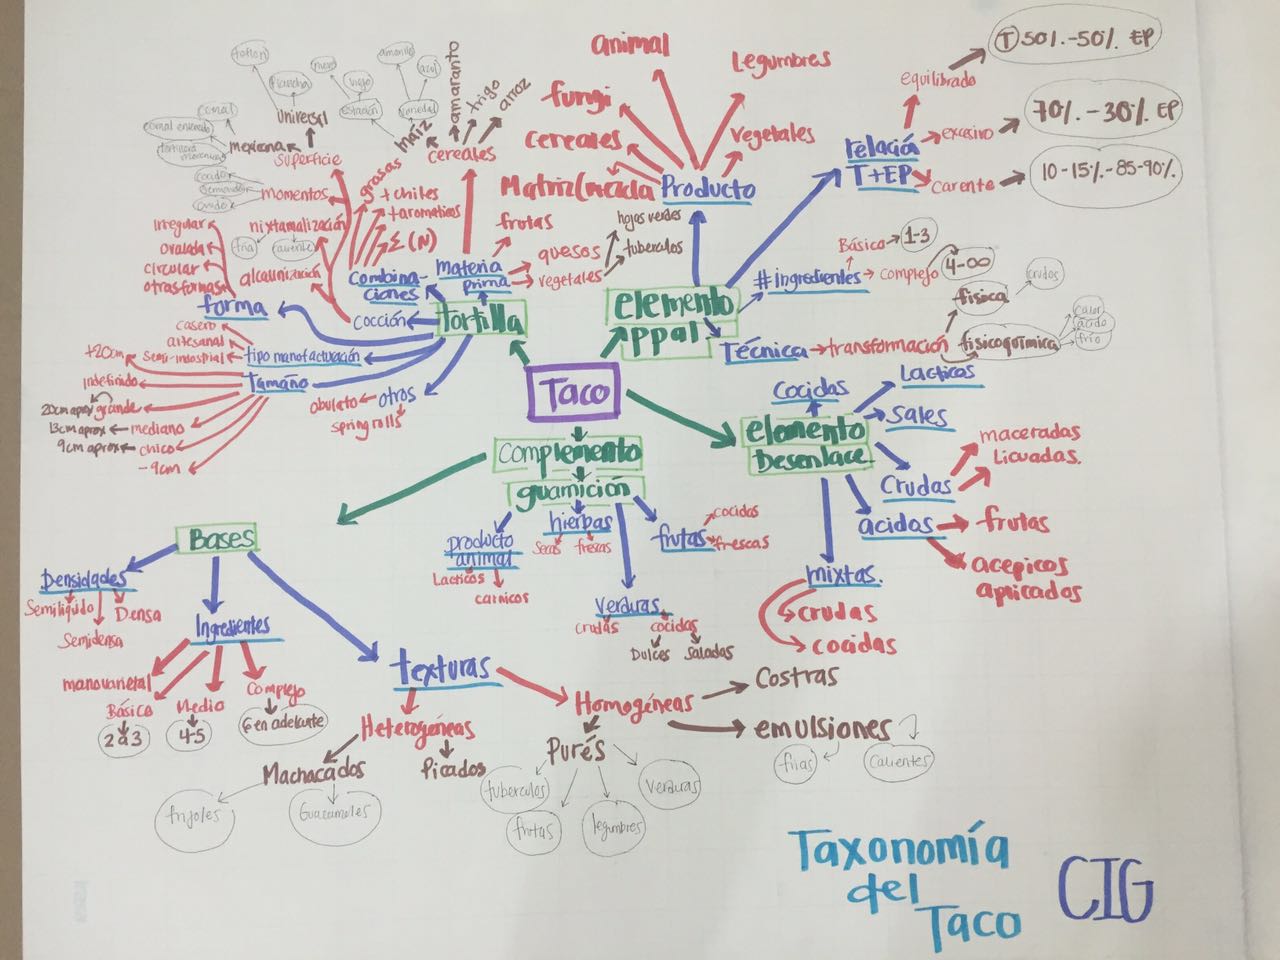 Taxonomía
del
Taco
CIG
Taco
Tortilla
materia
prima
frutas
quesos
vegetales
hojas verdes
tuberculos
cereales
maiz
amaranto
trigo
arroz
estación
variedad
amarillo
azul
combina-
ciones
grasas
+ chiles
+ aromaticos
Σ (N)
cocción
superficie
universal
teflon
plancha
mexicana
comal
comal encerado
momentos
cocido
crudo
nixtamalización
fria
caliente
alcalinización
forma
irregular
ovalada
circular
otras formas
tipo manofactuación
casero
artesanal
semi-industrial
Tamaño
+20cm
indefinido
20cm aprox
grande
13cm aprox
mediano
9cm aprox
chico
-9cm
otros
obulato
spring rolls
elemento
ppal
Producto
animal
Legumbres
fungi
cereales
vegetales
Matriz/mezcla
relación
T+EP
equilibrado
T 50%.-50%. EP
excesivo
70%. -30% EP
carente
10-15%-85-90%.
#ingredientes
Básico
1-3
complejo
4-∞
Técnica
transformación
fisica
crudos
fisicoquimica
calor
ácido
frio
elemento
Desenlace
cocidas
Lacticos
sales
crudas
maceradas
Licuadas.
acidos
frutas
acepicos
apricados
mixtas.
crudas
cocidas
complemento
guarnición
producto
animal
Lacticos
carnicos
hierbas
secas
frescas
verduras
crudas
cocidas
Dulces
saladas
frutas
cocidas
frescas
Bases
Densidades
Semiliquido
Semidensa
Densa
Ingredientes
manovarietal
Básico
2 a 3
Medio
4-5
Complejo
6 en adelante
texturas
Heterogéneas
Machacados
frijoles
Guacamoles
Picados
Homogéneas
Costras
emulsiones
frias
calientes
Purés
tuberculos
frutas
legumbres
verduras